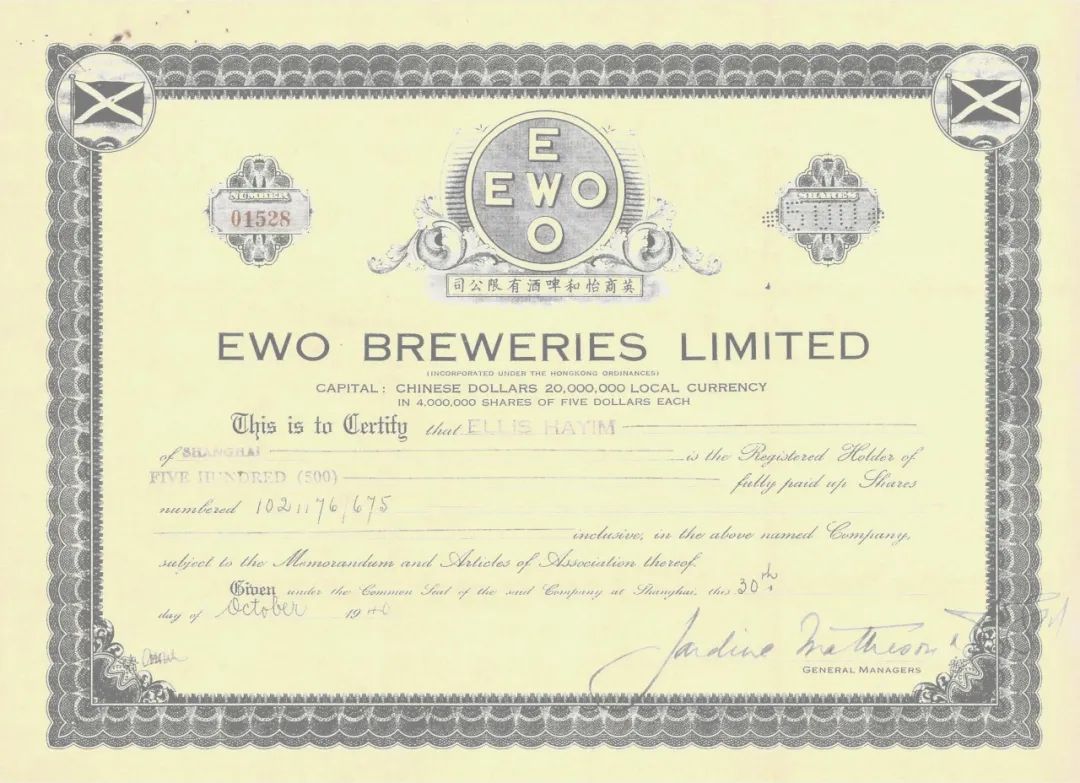 E
EWO
O
NUMBER
01528
SHARES
500
司公限有酒啤和怡商英
EWO BREWERIES LIMITED
(INCORPORATED UNDER THE HONGKONG ORDINANCES)
CAPITAL: CHINESE DOLLARS 20,000,000 LOCAL CURRENCY
IN 4,000,000 SHARES OF FIVE DOLLARS EACH
This is to Certify that ELLIS HAYIM
of SHANGHAI is the Registered Holder of
FIVE HUNDRED (500) fully paid up Shares
numbered 1021176/675
inclusive, in the above named Company,
subject to the Memorandum and Articles of Association thereof.
Given under the Common Seal of the said Company at Shanghai, this 30th
day of October 1940
Jardine Matheson &
GENERAL MANAGERS